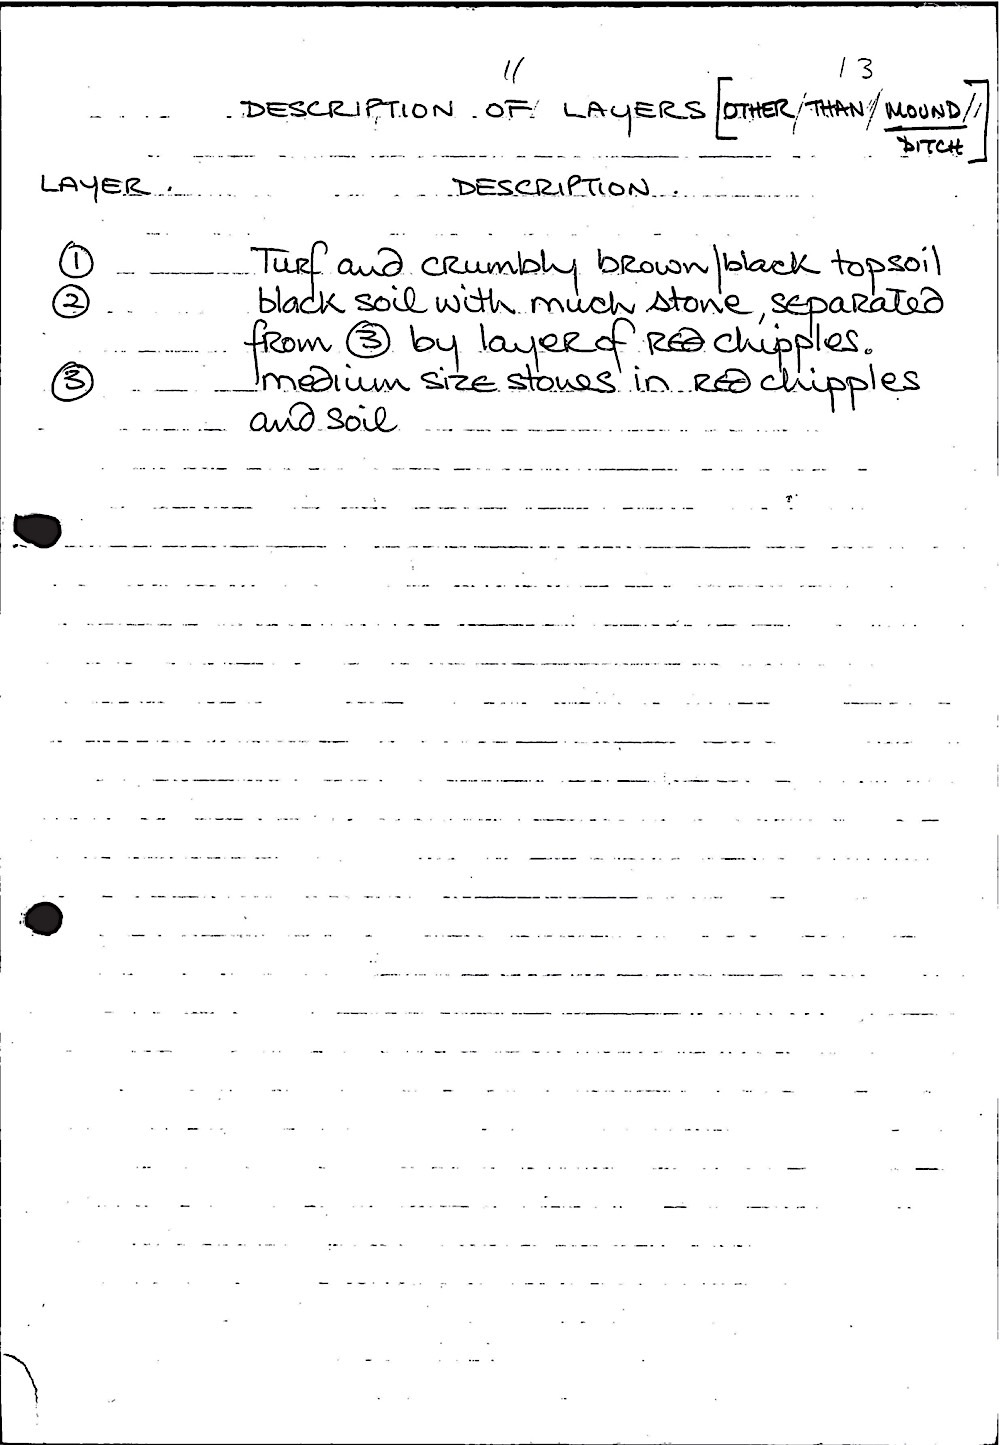 11 13
DESCRIPTION OF LAYERS [OTHER/THAN/MOUND//
DITCH]
LAYER. DESCRIPTION.
① Turf and crumbly brown/black topsoil
② black soil with much stone, separated
from ③ by layer of red chipples.
③ medium size stones in red chipples
and soil